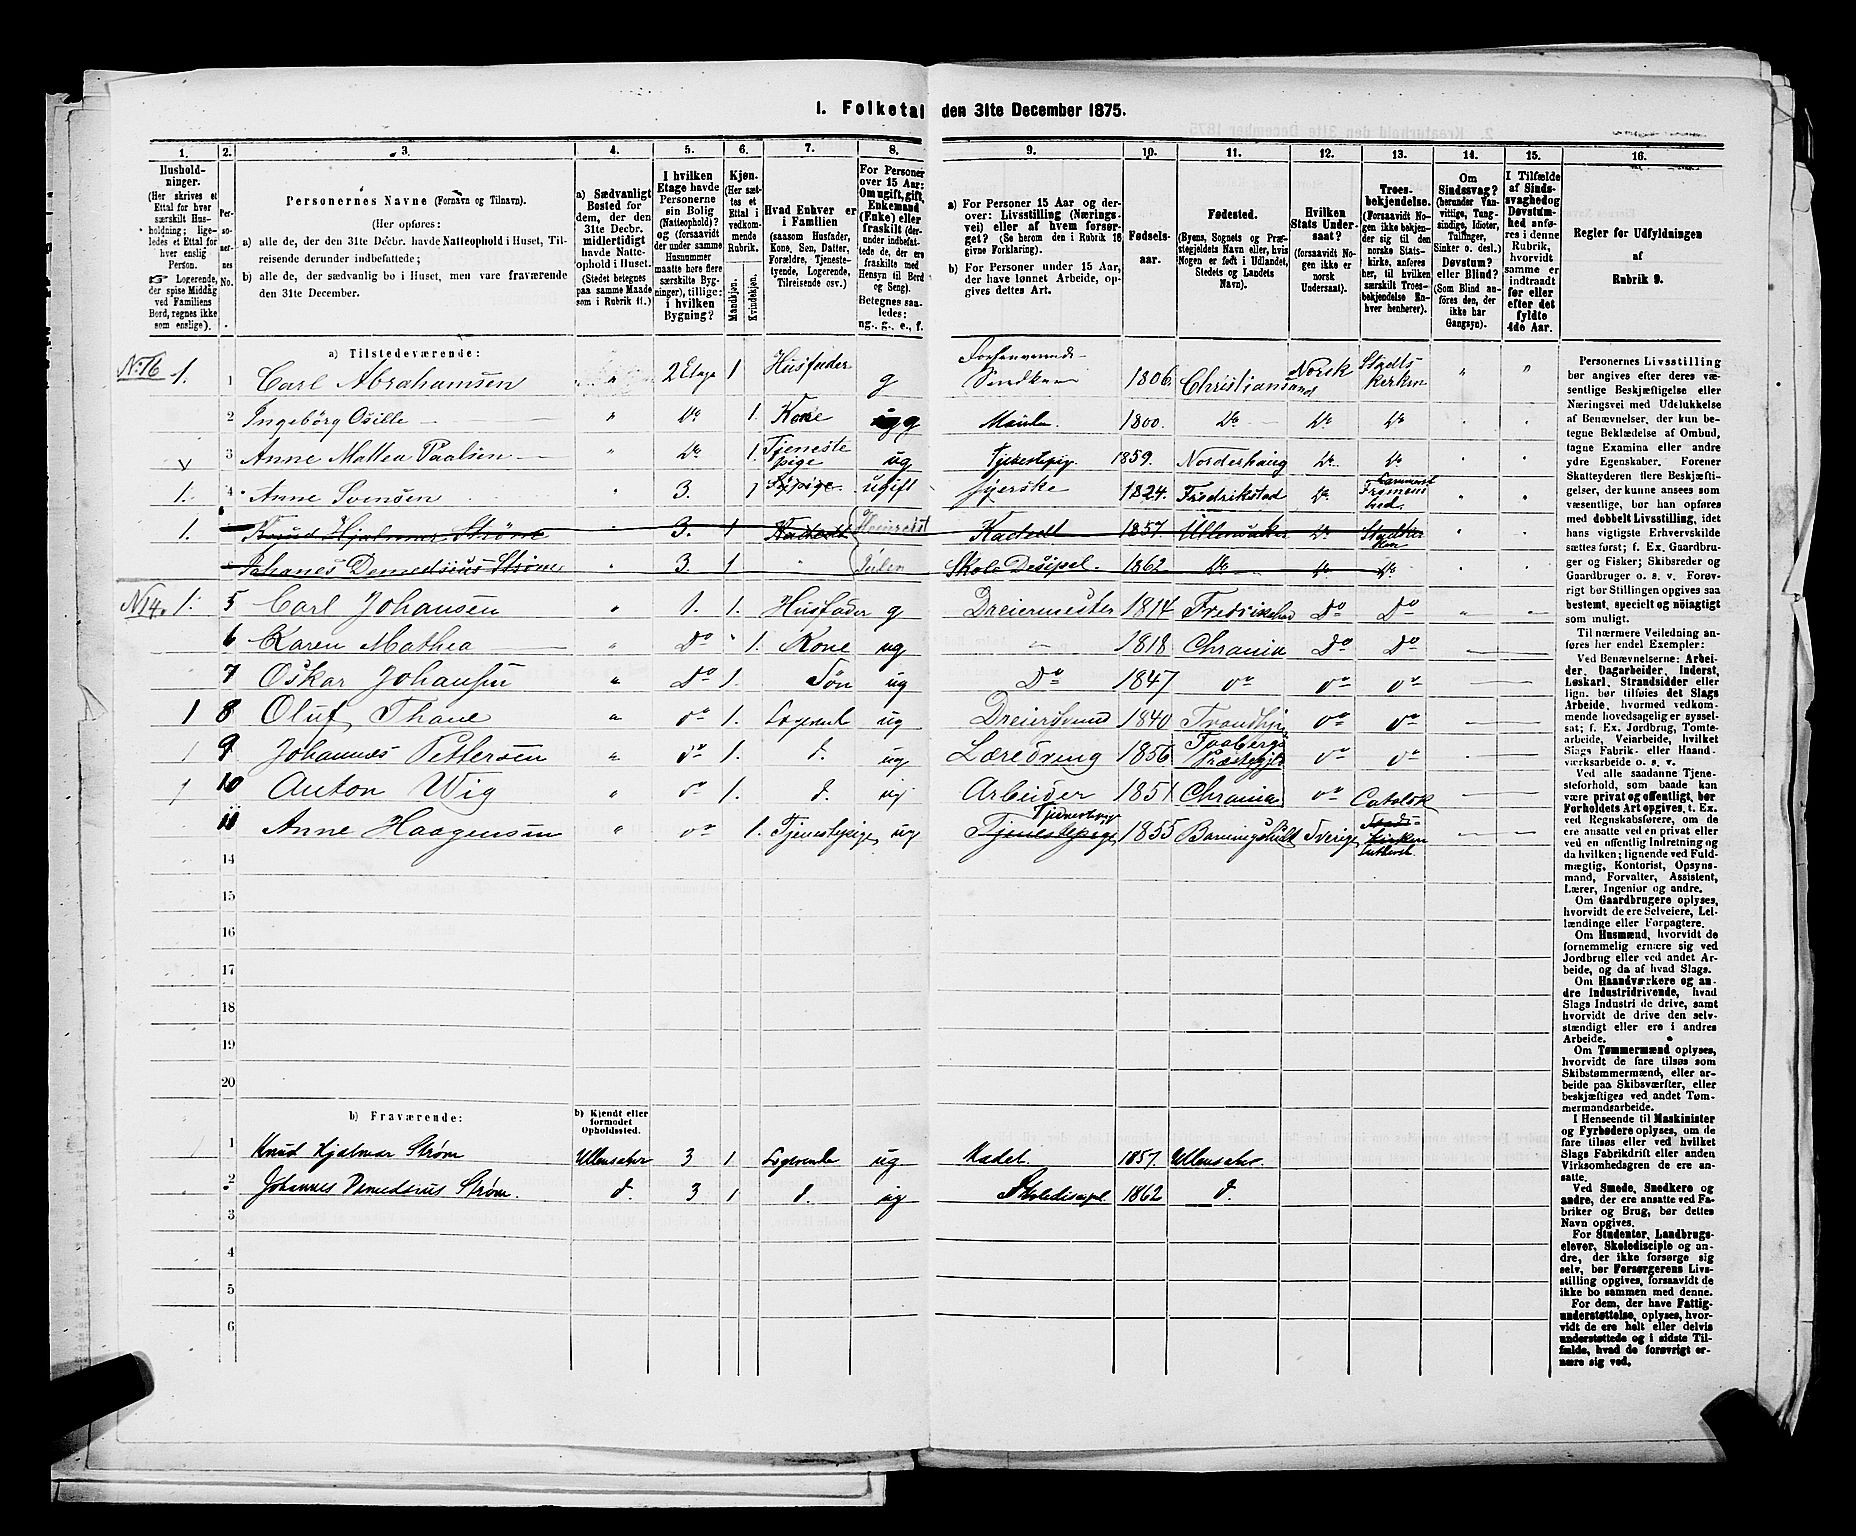 1. Folketal den 31te December 1875.
1. 2. 3. 4. 5. 6. 7. 8. 9. 10. 11. 12. 13. 14. 15. 16.
Hushold-
ninger.
(Her skrives et
Ettal for hver
særskilt Hus-
holdning; lige-
ledes et Ettal for
hver enslig
Person.
☞ Logerende,
der spise Middag
ved Familiens
Bord, regnes ikke
som enslige).
Per-
so-
ner-
nes
No.
Personernes Navne (Fornavn og Tilnavn).
(Her opføres:
a) alle de, der den 31te Decbr. havde Natteophold i Huset, Til-
reisende derunder indbefattede;
b) alle de, der sædvanlig bo i Huset, men vare fraværende
den 31te December.
a) Sædvanligt
Bosted for
dem, der den
31te Decbr.
midlertidigt
havde Natte-
ophold i Huset.
(Stedet betegnes
paa samme Maade
som i Rubrik 11.)
I hvilken
Etage havde
Personerne
sin Bolig
(Natteophold)?
og (forsaavidt
der under samme
Husnummer
maatte høre flere
særskilte Byg-
ninger), tillige:
i hvilken
Bygning?
Kjøn.
(Her sæt-
tes et
Ettal i
vedkom-
mende
Rubrik.
Mandkjøn.
Kvindekjøn.
Hvad Enhver er
i Familien
(saasom Husfader,
Kone, Søn, Datter,
Forældre, Tjeneste-
tyende, Logerende,
Tilreisende osv.)
For Personer
over 15 Aar:
Om ugift, gift,
Enkemand
(Enke) eller
fraskilt (der-
under indbefat-
tede de, der ere
fraskilte med
Hensyn til Bord
og Seng).
Betegnes saa-
ledes:
ug., g., e., f.
a) For Personer 15 Aar og der-
over: Livsstilling (Nærings-
vei) eller af hvem forsør-
get? (Se herom den i Rubrik 16
givne Forklaring).
b) For Personer under 15 Aar,
der have lønnet Arbeide, op-
gives dettes Art.
Fødsels-
aar.
Fødested.
(Byens, Sognets og Præ-
stegjeldets Navn eller, hvis
Nogen er født i Udlandet,
Stedets og Landets
Navn).
Hvilken
Stats Under-
saat?
(forsaavidt No-
gen ikke er
norsk
Undersaat).
Troes-
bekjendelse.
(Forsaavidt No-
gen ikke bekjen-
der sig til den
norske Stats-
kirke, anføres
her, til hvilken
særskilt Troes-
bekjendelse En-
hver henhører).
Om
Sindssvag?
(herunder Van-
vittige, Tung-
sindige, Idioter,
Tullinger,
Sinker o. desl.)
Døvstum?
eller Blind?
(Som Blind an-
føres den, der
ikke har
Gangsyn).
I Tilfælde
af Sinds-
svaghed og
Døvstum-
hed anfø-
res i denne
Rubrik,
hvorvidt
samme er
indtraadt
før eller
efter det
fyldte
4de Aar.
Regler for Udfyldningen
af
Rubrik 9.
a) Tilstedeværende:
No 16 1. 1 Carl Abrahamsen " 2 Etage 1 Husfader g Forhenværende Sandkun 1806. Christiansand Norsk Stadts kerken " "
2 Ingebörg Osille " Do 1. Kone g 1800. Do Do Do
3 Anne Mattea Paalsen " Do 1. Tjeneste pige ug Tjenestepig. 1859. Norderhaug Do Do
1. 4 Anne Svensen " 3. 1 ugift Syerske 1824. Fredrikstad Do
1. Knud Hjalmar Strøm " 3. 1 Kadedt Kadedt 1857 Ullensaker Do Stadtskerken
Johanes Demedsius Strøm " 3. 1 " Julen Skole Desipel. 1862 Do Do Do
No 14. 1. 5 Carl Johansen " 1. 1. Husfader g Dreiermester 1814 Fredrikshal Do Do " "
6 Karen Mathea " Do 1. Kone ug " 1818 Chrania Do Do
7 Oskar Johansen " Do 1. Søn ug Do 1847 Do Do Do
1 8 Oluf Thane " Do 1. Logerende ug Dreiersvend 1840 Trondhj Do Do
1 9 Johannes Pettersen " Do 1. d. ug Læredreng 1856 Faabergs Præstegjld Do Do
1 10 Anton Wig " Do 1. d. ug Arbeider 1851 Chrania Do Catolsk
11 Anne Haagensen " Do 1. Tjenestepige ug Tjenestepige Tjenestepige 1855 Sverige Stads-kirken Luthersk
14
15
16
17
18
19
20
b) Fraværende:
b) Kjendt eller
formodet
Opholdssted.
1 Knud Hjalmar Strøm Ullensaker 3 1 Logerende ug Kadet. 1857. Ullensaker.
2 Johannes Demedsius Strøm. d. 3 1 d. ug Skoledisipel. 1862 d.
3
4
5
6
Personernes Livsstilling
bør angives efter deres væ-
sentlige Beskjæftigelse eller
Næringsvei med Udelukkelse
af Benævnelser, der kun be-
tegne Beklædelse af Ombud,
tagne Examina eller andre
ydre Egenskaber. Forener
Skatteyderen flere Beskjæfti-
gelser, der kunne ansees som
væsentlige, bør han opføres
med dobbelt Livsstilling, idet
hans vigtigste Erhvervskilde
sættes først; f. Ex. Gaardbru-
ger og Fisker; Skibsreder og
Gaardbruger o. s. v. Forøv-
rigt bør Stillingen opgives saa
bestemt, specielt og nøiagtigt
som muligt.
Til nærmere Veiledning an-
føres her endel Exempler:
Ved Benævnelserne: Arbei-
der, Dagarbeider, Inderst,
Løskarl, Strandsidder eller
lign. bør tilføies det Slags
Arbeide, hvormed vedkom-
mende hovedsagelig er syssel-
sat; f. Ex. Jordbrug, Tomte-
arbeide, Veiarbeide, hvilket
Slags Fabrik- eller Haand-
værksarbeide o. s. v.
Ved alle saadanne Tjene-
steforhold, som baade kan
være privat og offentligt, bør
Forholdets Art opgives, t. Ex.
ved Regnskabsførere, om de
ere ansatte ved en privat eller
ved en offentlig Indretning og
da hvilken; lignende ved Fuld-
mægtig, Kontorist, Opsyns-
mand, Forvalter, Assistent,
Lærer, Ingeniør og andre.
Om Gaardbrugere oplyses,
hvorvidt de ere Selveiere, Lei-
lændinge eller Forpagtere.
Om Husmænd, hvorvidt de
fornemmelig ernære sig ved
Jordbrug eller ved andet Ar-
beide, og da af hvad Slags.
Om Haandværkere og an-
dre Industridrivende, hvad
Slags Industri de drive, samt
hvorvidt de drive den selv-
stændigt eller ere i andres
Arbeide.
Om Tømmermænd oplyses,
hvorvidt de fare tilsøs som
Skibstømmermænd, eller ar-
beide paa Skibsværfter, eller
beskjæftiges ved andet Tøm-
mermandsarbeide.
I Henseende til Maskinister
og Fyrbødere oplyses, om de
fare tilsøs eller ved hvilket
Slags Fabrikdrift eller anden
Virksomhedsgren de ere an-
satte.
Ved Smede, Snedkere og
andre, der ere ansatte ved Fa-
briker og Brug, bør dettes
Navn opgives.
For Studenter, Landbrugs-
elever, Skoledisciple og an-
dre, der ikke forsørge sig
selv, bør Forsørgerens Livs-
stilling opgives, forsaavidt de
ikke bo sammen med denne.
For dem, der have Fattig-
understøttelse, oplyses, hvor-
vidt de ere helt eller delvis
understøttede og i sidste Til-
fælde, hvad de forøvrigt er-
nære sig ved.